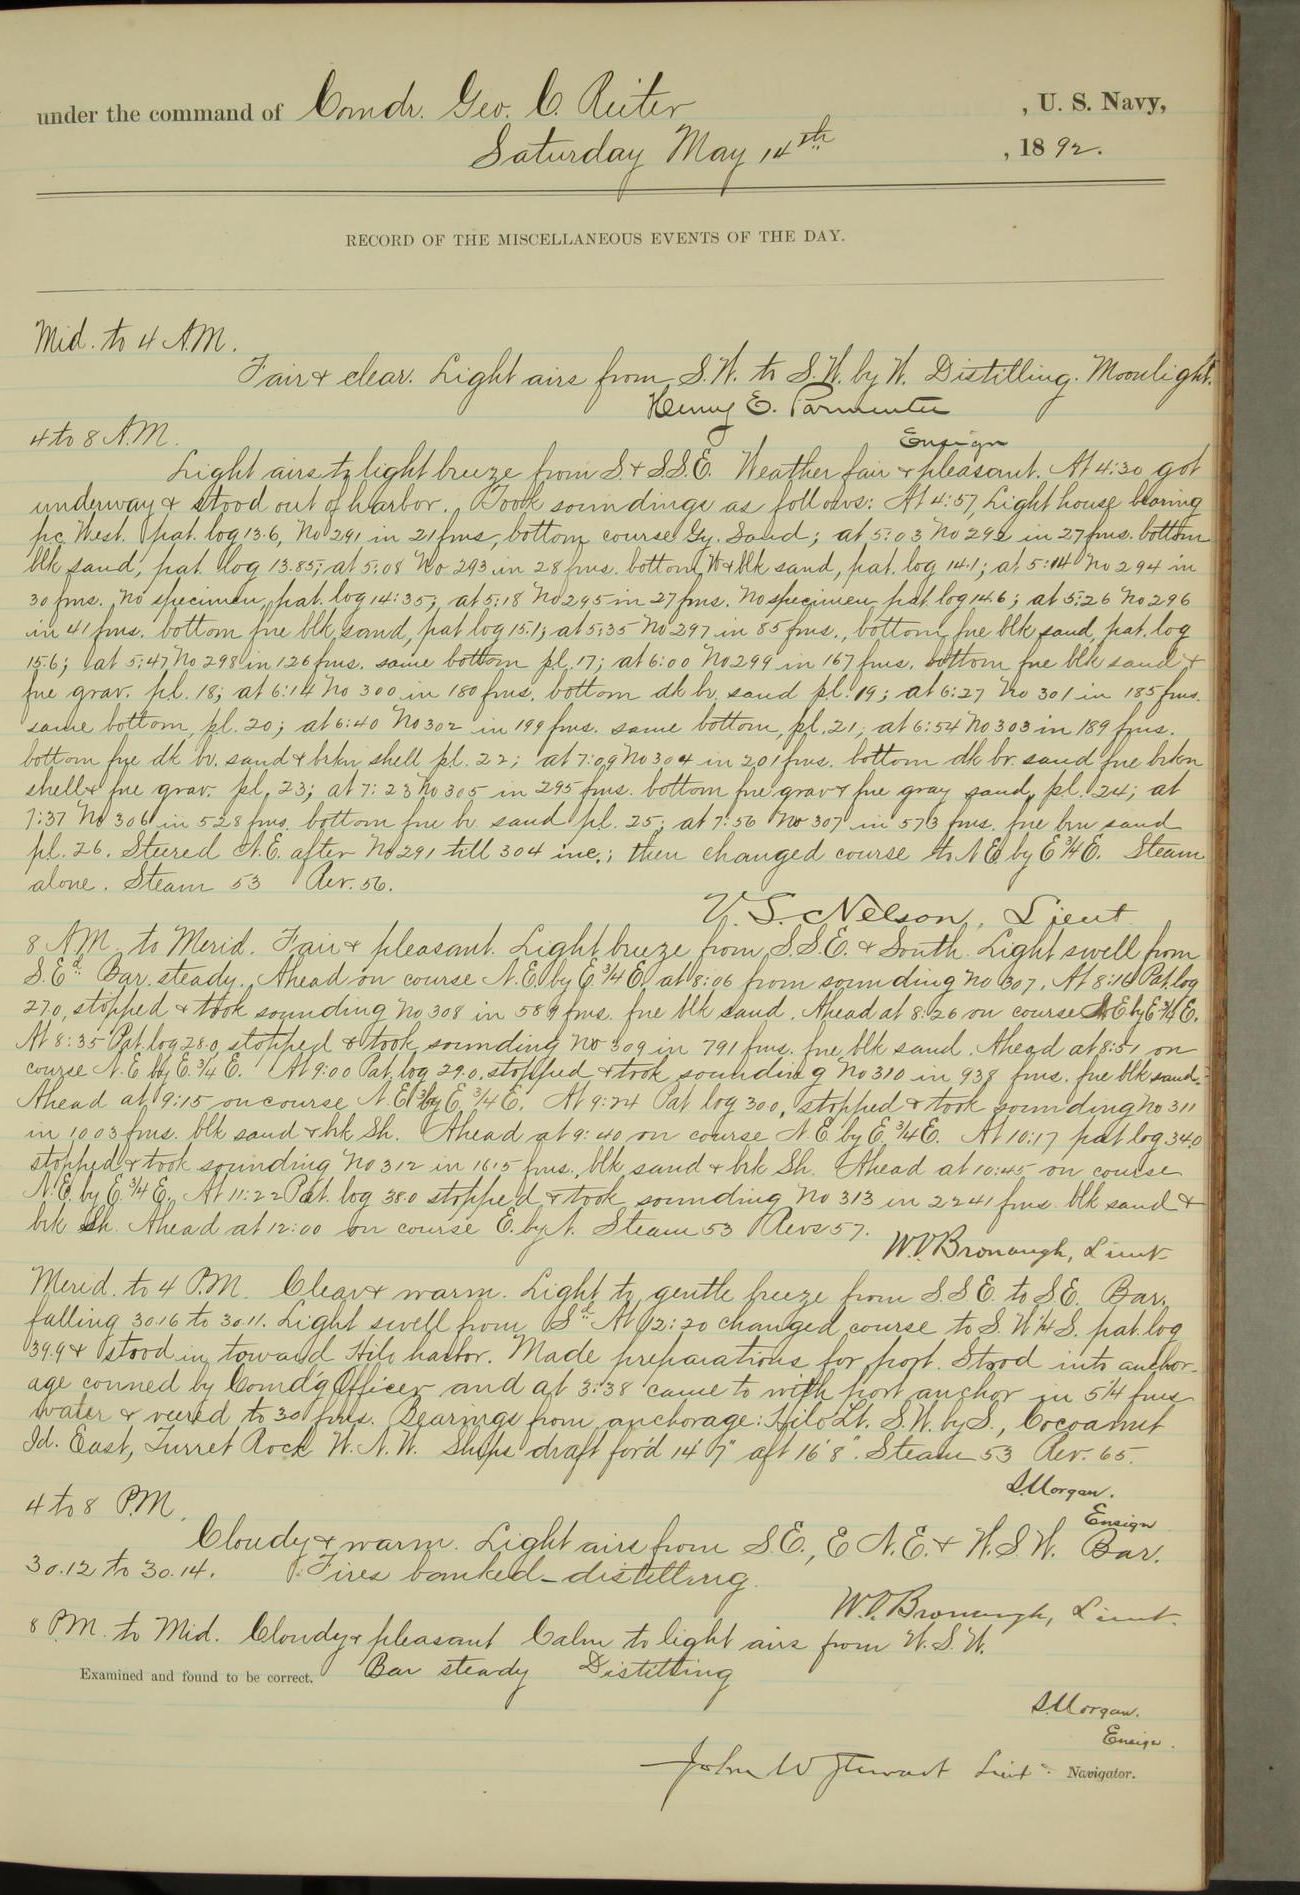 under the command of Comdr. Geo. C. Reiter , U. S. Navy,
Saturday May 14th , 1892.
RECORD OF THE MISCELLANEOUS EVENTS OF THE DAY.
Mid. to 4 A.M.
Fair & clear. Light airs from S.W. to S.W. by W. Distilling. Moonlight.
Henry E. Parmenter
Ensign
4 to 8 A.M.
Light airs to light breeze from S. & S.S.E. Weather fair & pleasant. At 4:30 got
underway & stood out of harbor. Took soundings as follows: At 4:57, Light house bearing
p.c. West. pat. log 13.6, No 291 in 21 fms, bottom course Gy. Sand; at 5:03 No 292 in 27 fms. bottom
blk sand, pat. log 13.85; at 5:08 No 293 in 28 fms. bottom W & blk sand, pat. log 14.1; at 5:14 No 294 in
30 fms. No specimen, pat. log 14.35; at 5:18 No 295 in 27 fms. No specimen pat log 14.6; at 5:26 No 296
in 41 fms. bottom fne blk sand, pat log 15.1; at 5:35 No 297 in 85 fms., bottom fne blk sand, pat. log
15.6; at 5:47 No 298 in 126 fms. same bottom pl. 17; at 6:00 No 299 in 167 fms. bottom fne blk sand &
fne grav. pl. 18; at 6:14 No 300 in 180 fms. bottom dk br. sand pl. 19; at 6:27 No 301 in 185 fms.
same bottom, pl. 20; at 6:40 No 302 in 199 fms. same bottom, pl. 21; at 6:54 No 303 in 189 fms.
bottom fne dk br. sand & brkn shell pl. 22; at 7:09 No 304 in 201 fms. bottom dk br. sand fne brkn
shell & fne grav. pl. 23; at 7:23 No 305 in 295 fms. bottom fne grav & fne gray sand, pl. 24; at
7:37 No 306 in 528 fms. bottom fne br sand pl. 25; at 7:56 No 307 in 573 fms. fne brn sand
pl. 26. Steered N.E. after No 291 till 304 inc.; then changed course to N.E. by E 3/4 E. Steam
alone. Steam 53 Rev. 56.
V. S. Nelson, Lieut
8 A.M. to Merid. Fair & pleasant. Light breeze from S.S.E. & South. Light swell from
S.Ed. Bar. steady. Ahead on course N.E. by E 3/4 E. at 8:06 from sounding No 307. At 8:16 Pat. log
27.0, stopped & took sounding No 308 in 589 fms. fne blk sand. Ahead at 8:26 on course N.E by E 3/4 E.
At 8:35 Pat. log 28.0 stopped & took sounding No 309 in 791 fms. fne blk sand. Ahead at 8:51 on
course N.E by E. 3/4 E. At 9:00 Pat. log 29.0. stopped & took sounding No 310 in 938 fms. fne blk sand.
Ahead at 9:15 on course N.E. by E 3/4 E. At 9:24 Pat log 30.0, stopped & took sounding No 311
in 1003 fms. blk sand & brk Sh. Ahead at 9:40 on course N.E. by E. 3/4 E. At 10:17 pat log 34.0
stopped & took sounding No 312 in 1615 fms., blk sand & brk Sh. Ahead at 10:45 on course
N.E. by E. 3/4 E. At 11:22 Pat. log 38.0 stopped & took sounding No 313 in 2241 fms. blk sand &
brk Sh. Ahead at 12:00 on course E. by N. Steam 53 Revs 57.
W.V. Bronaugh, Lieut.
Merid. to 4 P.M. Clear & warm. Light to gentle breeze from S.S.E. to S.E. Bar.
falling 30.16 to 30.11. Light swell from Sd. At 12:20 changed course to S. W 1/4 S. pat. log
39.9 & stood in toward Hilo harbor. Made preparations for port. Stood into anchor-
age conned by Comd'g Officer and at 3:38 came to with port anchor in 5 1/4 fms
water & veered to 30 fms. Bearings from anchorage: Hilo Lt. S.W. by S., Cocoanut
Id. East, Turret Rock W.N.W. Ships draft for'd 14' 7" aft 16' 8". Steam 53 Rev. 65.
S. Morgan.
Ensign
4 to 8 P.M.
Cloudy & warm. Light airs from S.E., E.N.E. & W.S.W. Bar.
30.12 to 30.14. Fires banked - distilling.
W.V. Bronaugh, Lieut.
8 P.M. to Mid. Cloudy & pleasant Calm to light airs from W.S.W.
Bar steady Distilling
Examined and found to be correct.
S. Morgan.
Ensign.
John W Stewart Lieut. Navigator.